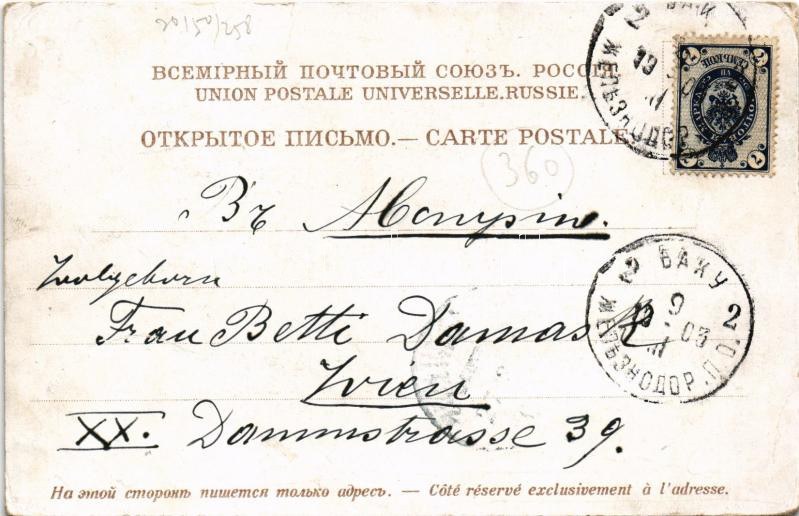 20/50/258
ВСЕМІРНЫЙ ПОЧТОВЫЙ СОЮЗЪ. РОССІЯ.
UNION POSTALE UNIVERSELLE. RUSSIE.
ОТКРЫТОЕ ПИСЬМО.— CARTE POSTALE
360
Въ Австрію.
Wolgeborn
Frau Betti Damask
Wien
XX. Dammstrasse 39.
2 БАКУ 2
9
03
ЖЕЛѢЗНОДОР. П. О.
На этой сторонѣ пишется только адресъ. — Côté réservé exclusivement à l'adresse.